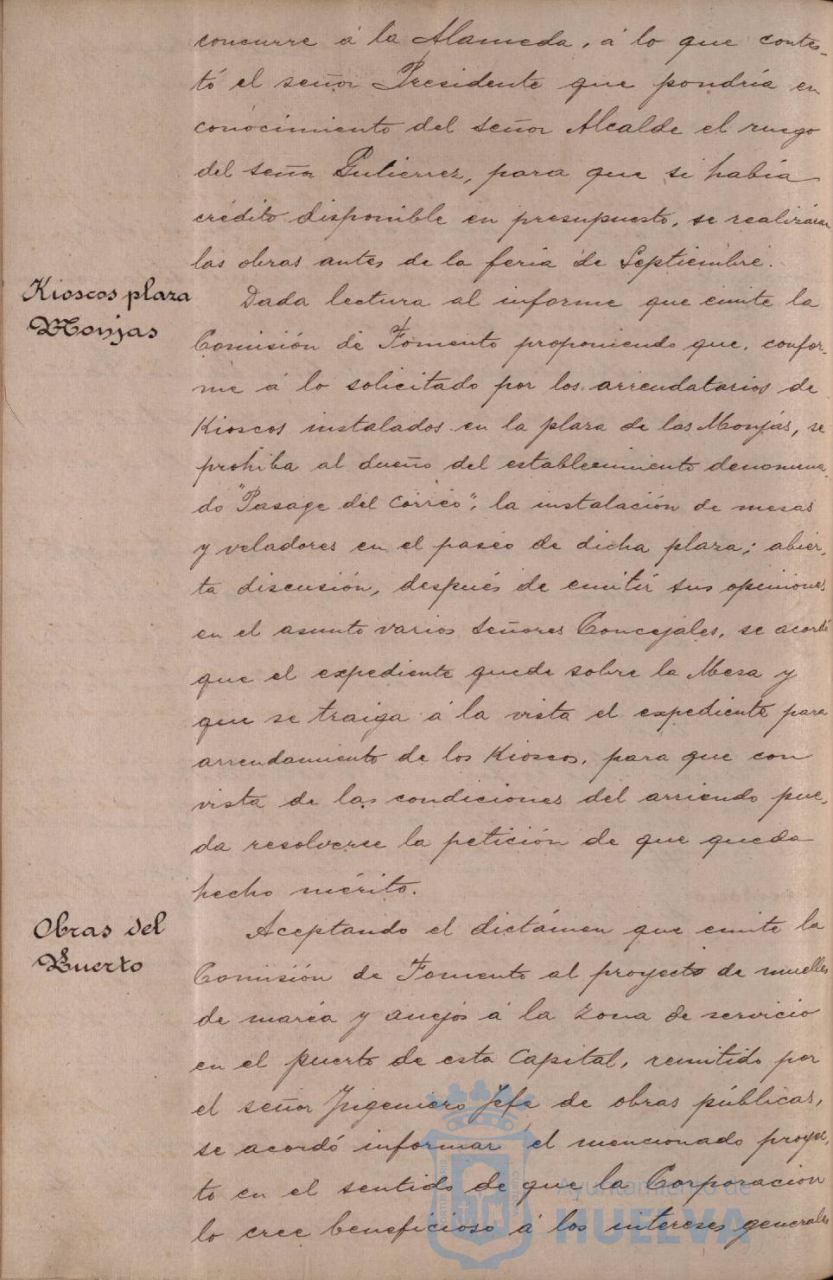 concurre á la Alameda, á lo que contes-
tó el señor Presidente que pondría en
conocimiento del señor Alcalde el ruego
del señor Gutierrez, para que si había
crédito disponible en presupuesto, se realizaran
las obras antes de la feria de Septiembre.
Kioscos plaza
Monjas
Dada lectura al informe que emite la
Comisión de Fomento proponiendo que, confor-
me á lo solicitado por los arrendatarios de
Kioscos instalados en la plaza de las Monjas, se
prohiba al dueño del establecimiento denomina-
do "Pasage del Correo", la instalación de mesas
y veladores en el paseo de dicha plaza; abier-
ta discusión, después de emitir sus opiniones
en el asunto varios señores Concejales, se acordó
que el expediente quede sobre la Mesa y
que se traiga á la vista el expediente para
arrendamiento de los Kioscos, para que con
vista de las condiciones del arriendo pue-
da resolverse la petición de que queda
hecho mérito.
Obras del
Puerto
Aceptando el dictámen que emite la
Comisión de Fomento al proyecto de muelles
de marea y anejos á la zona de servicio
en el puerto de esta Capital, remitido por
el señor Ingeniero Jefe de obras públicas,
se acordó informar el mencionado proyec-
to en el sentido de que la Corporación
lo cree beneficioso á los intereses generales
Ayuntamiento de
HUELVA